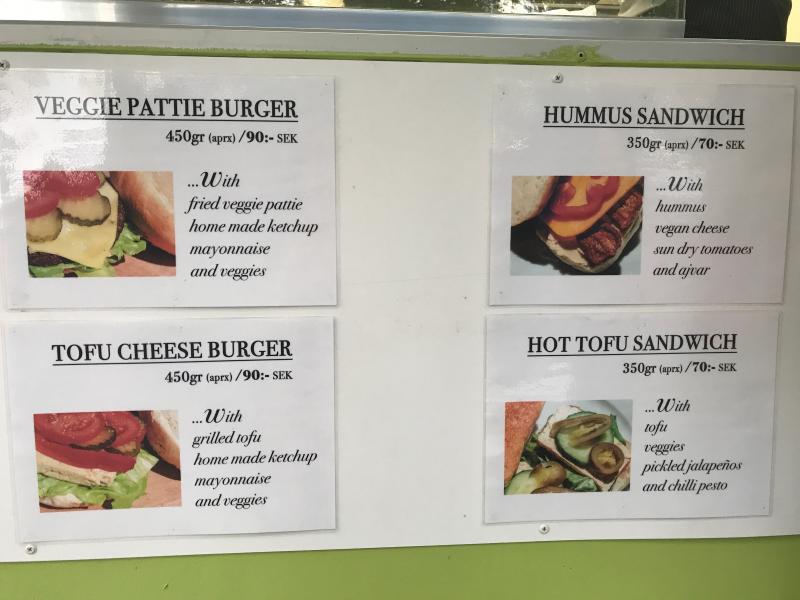 VEGGIE PATTIE BURGER
450gr (aprx) /90:- SEK
...With
fried veggie pattie
home made ketchup
mayonnaise
and veggies
HUMMUS SANDWICH
350gr (aprx) /70:- SEK
...With
hummus
vegan cheese
sun dry tomatoes
and ajvar
TOFU CHEESE BURGER
450gr (aprx) /90:- SEK
...With
grilled tofu
home made ketchup
mayonnaise
and veggies
HOT TOFU SANDWICH
350gr (aprx) /70:- SEK
...With
tofu
veggies
pickled jalapeños
and chilli pesto